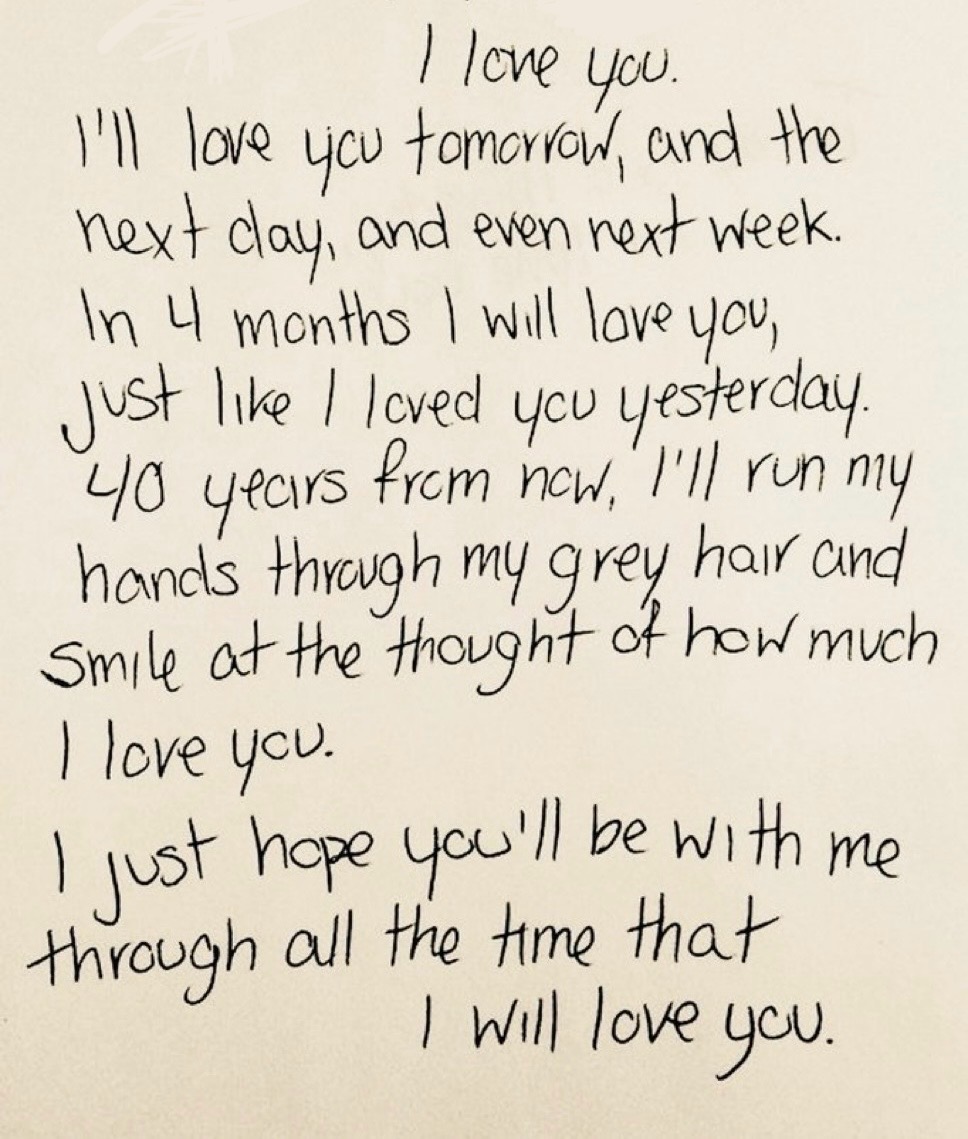 I love you.
I'll love you tomorrow, and the
next day, and even next week.
In 4 months I will love you,
just like I loved you yesterday.
40 years from now, I'll run my
hands through my grey hair and
smile at the thought of how much
I love you.
I just hope you'll be with me
through all the time that
I will love you.